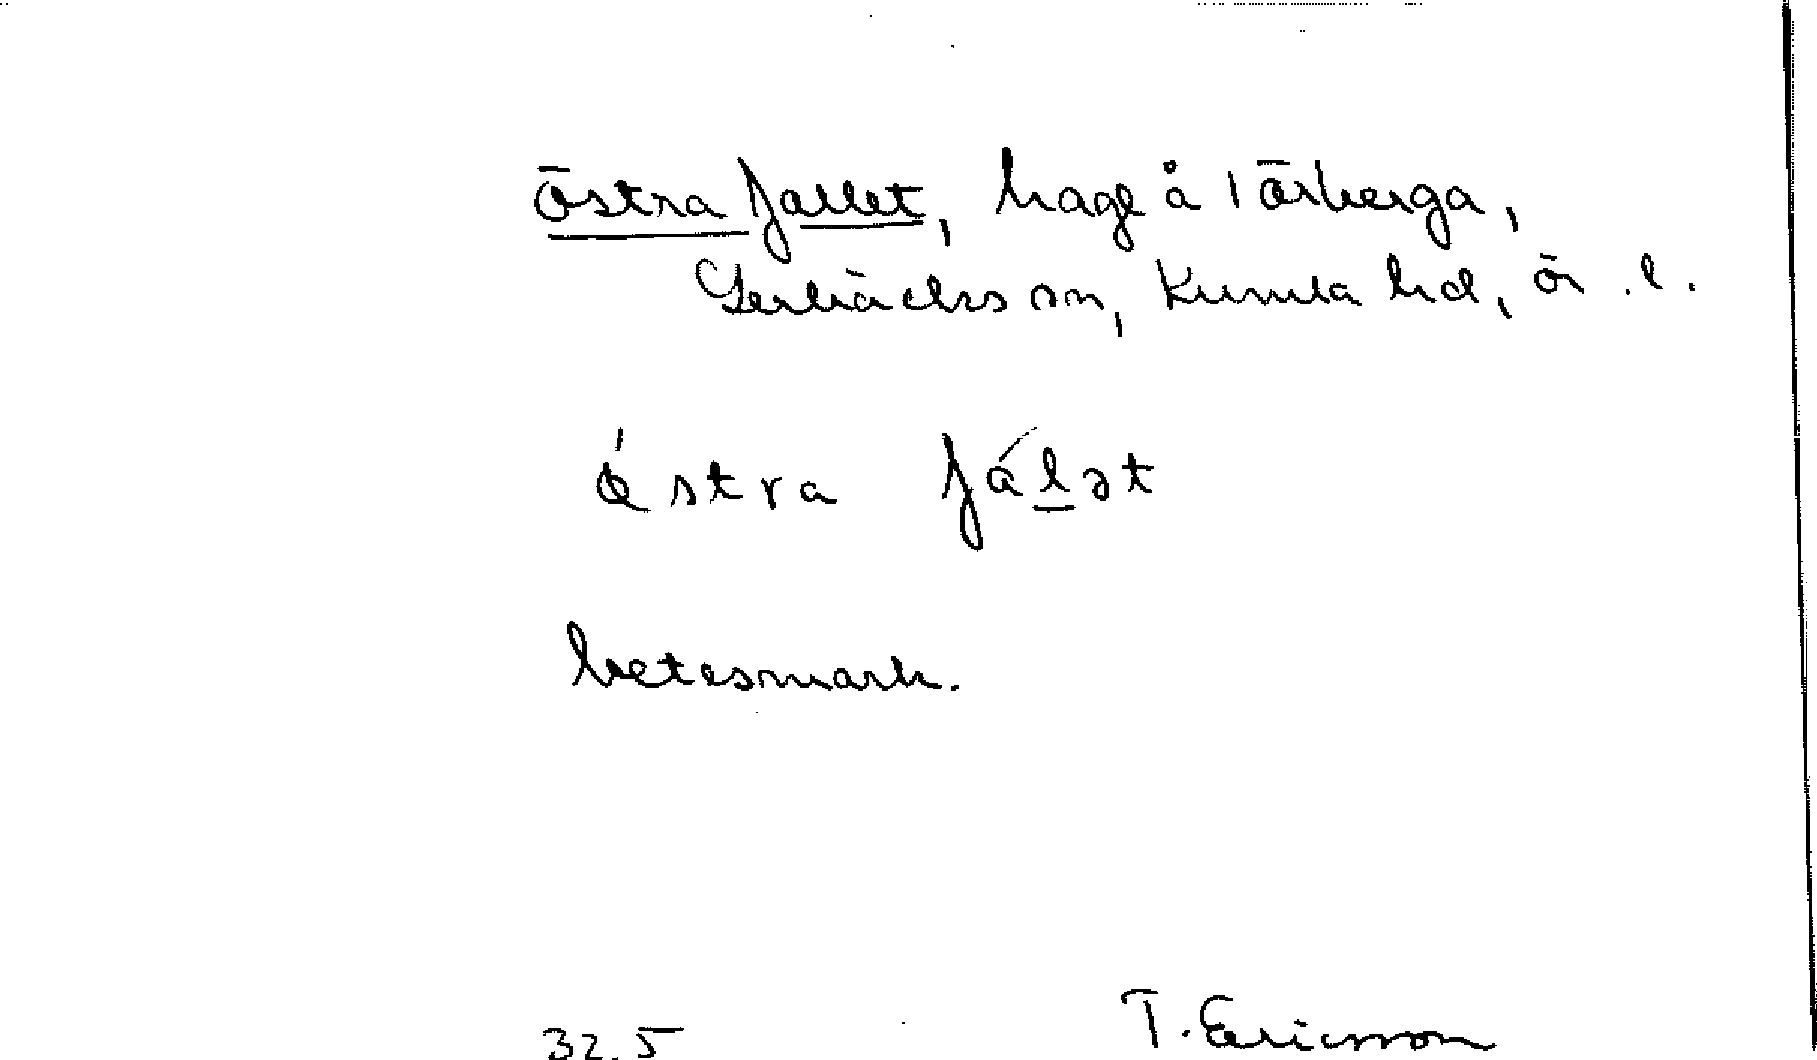 östra fallet, hage å Tärberga,
Gerbäcks sn, Kumla hd, ör. l.
ǿstra fáḻət
betesmark.
32.5 T. Ericsson